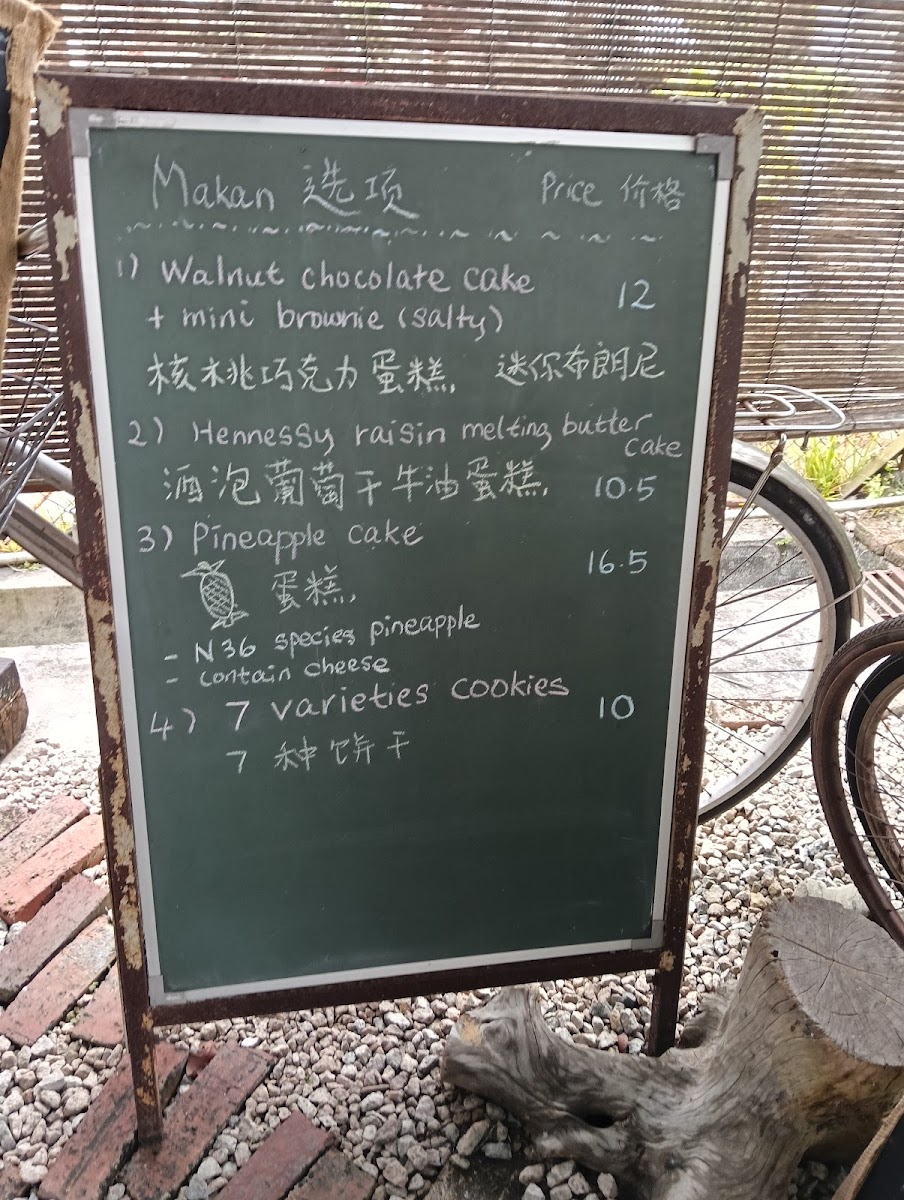 Makan 选项 Price 价格
1) Walnut chocolate cake
+ mini brownie (salty) 12
核桃巧克力蛋糕, 迷你布朗尼
2) Hennessy raisin melting butter
cake
酒泡葡萄干牛油蛋糕, 10.5
3) Pineapple cake
蛋糕, 16.5
- N36 species pineapple
- contain cheese
4) 7 varieties cookies 10
7 种饼干